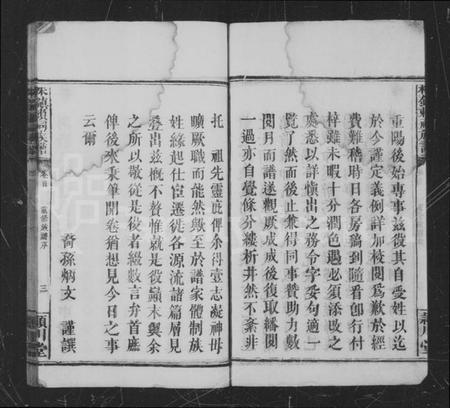 重陽後始專事茲役其自受姓以迄
於今謹定義例詳加校閱爲歉於經
費難稽時日各房稿到隨看卽行付
梓雖未暇十分潤色遇必須添改之
處悉以詳愼出之務令字妥句適一
覽了然而後止幸得同事贊助力數
閱月而譜遂觀厥成成後復取繙閱
一過亦自覺條分縷析井然不紊非
托　祖先靈庇俾余得壹志凝神毋
曠厥職而能然與至於譜家體制族
姓緣起仕宦遷徙各源流諸篇層見
疊出茲槪不贅惟就是役顚末與余
之所以敬從是役者綴數言弁首庶
俾後來秉筆開卷猶想見今日之事
云爾
裔孫炳文　謹譔
卷首
三
潁川堂